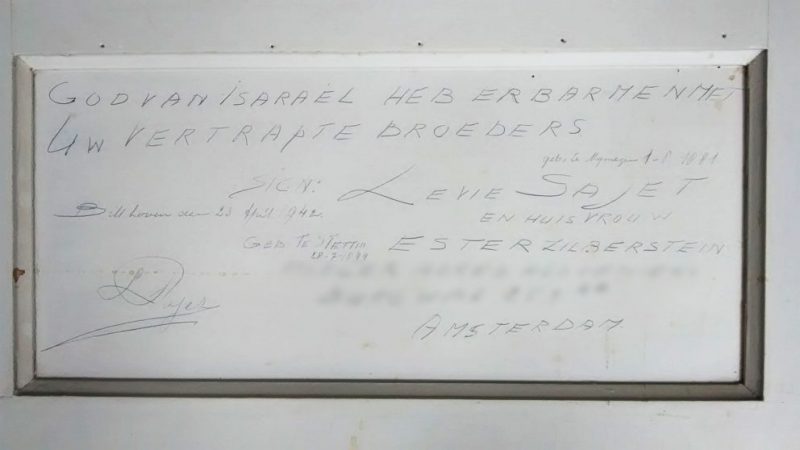 GOD VAN ISARAËL HEB ERBARMEN MET
UW VERTRAPTE BROEDERS
geb. te Nymegen 1-8 1881
SIGN: LEVIE SAJET
Bilthoven den 23 April 1942.
EN HUISVROUW
GEB. TE STETTIN ESTER ZILBERSTEIN
28-7-1899
L Sajet
AMSTERDAM